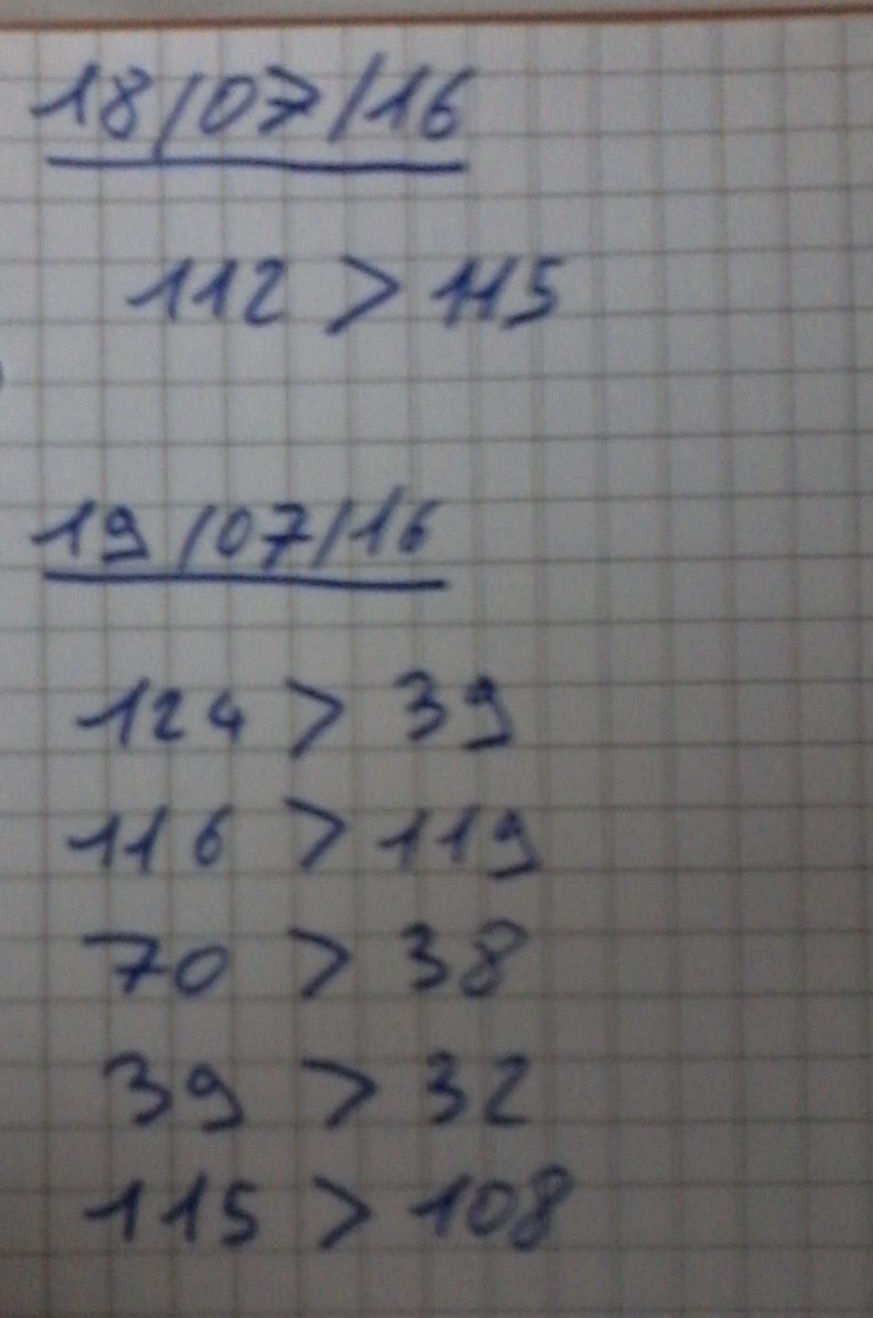 18/07/16
112 > 115
19/07/16
124 > 39
116 > 119
70 > 38
39 > 32
115 > 108